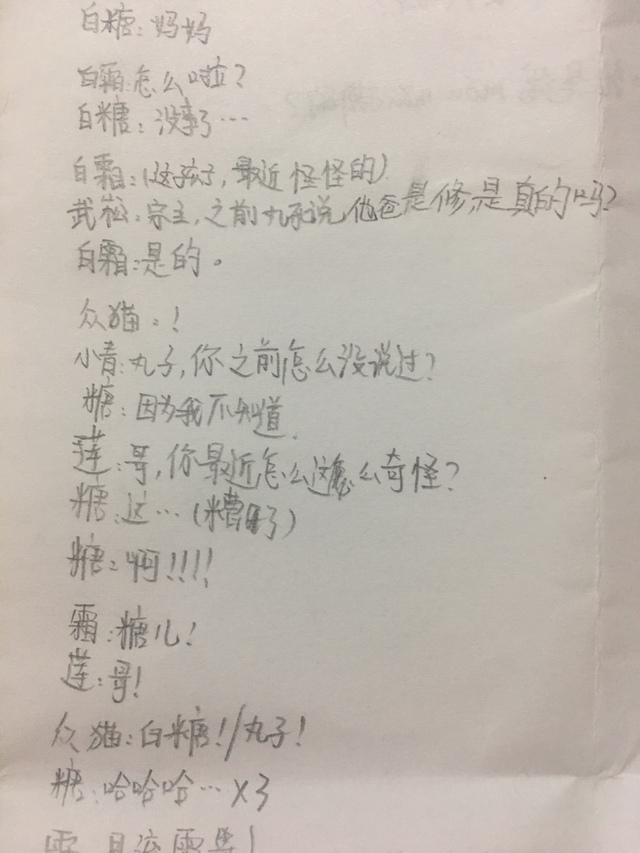 白糖：妈妈
白霜：怎么啦？
白糖：没事了…
白霜：（这孩子，最近怪怪的）
武崧：宗主，之前丸子说他爸是修，是真的吗？
白霜：是的。
众猫：！
小青：丸子，你之前怎么没说过？
糖：因为我不知道.
莲：哥，你最近怎么这么奇怪？
糖：这…（糟了）
糖：啊！！！！
霜：糖儿！
莲：哥！
众猫：白糖！/丸子！
糖：哈哈哈…×3